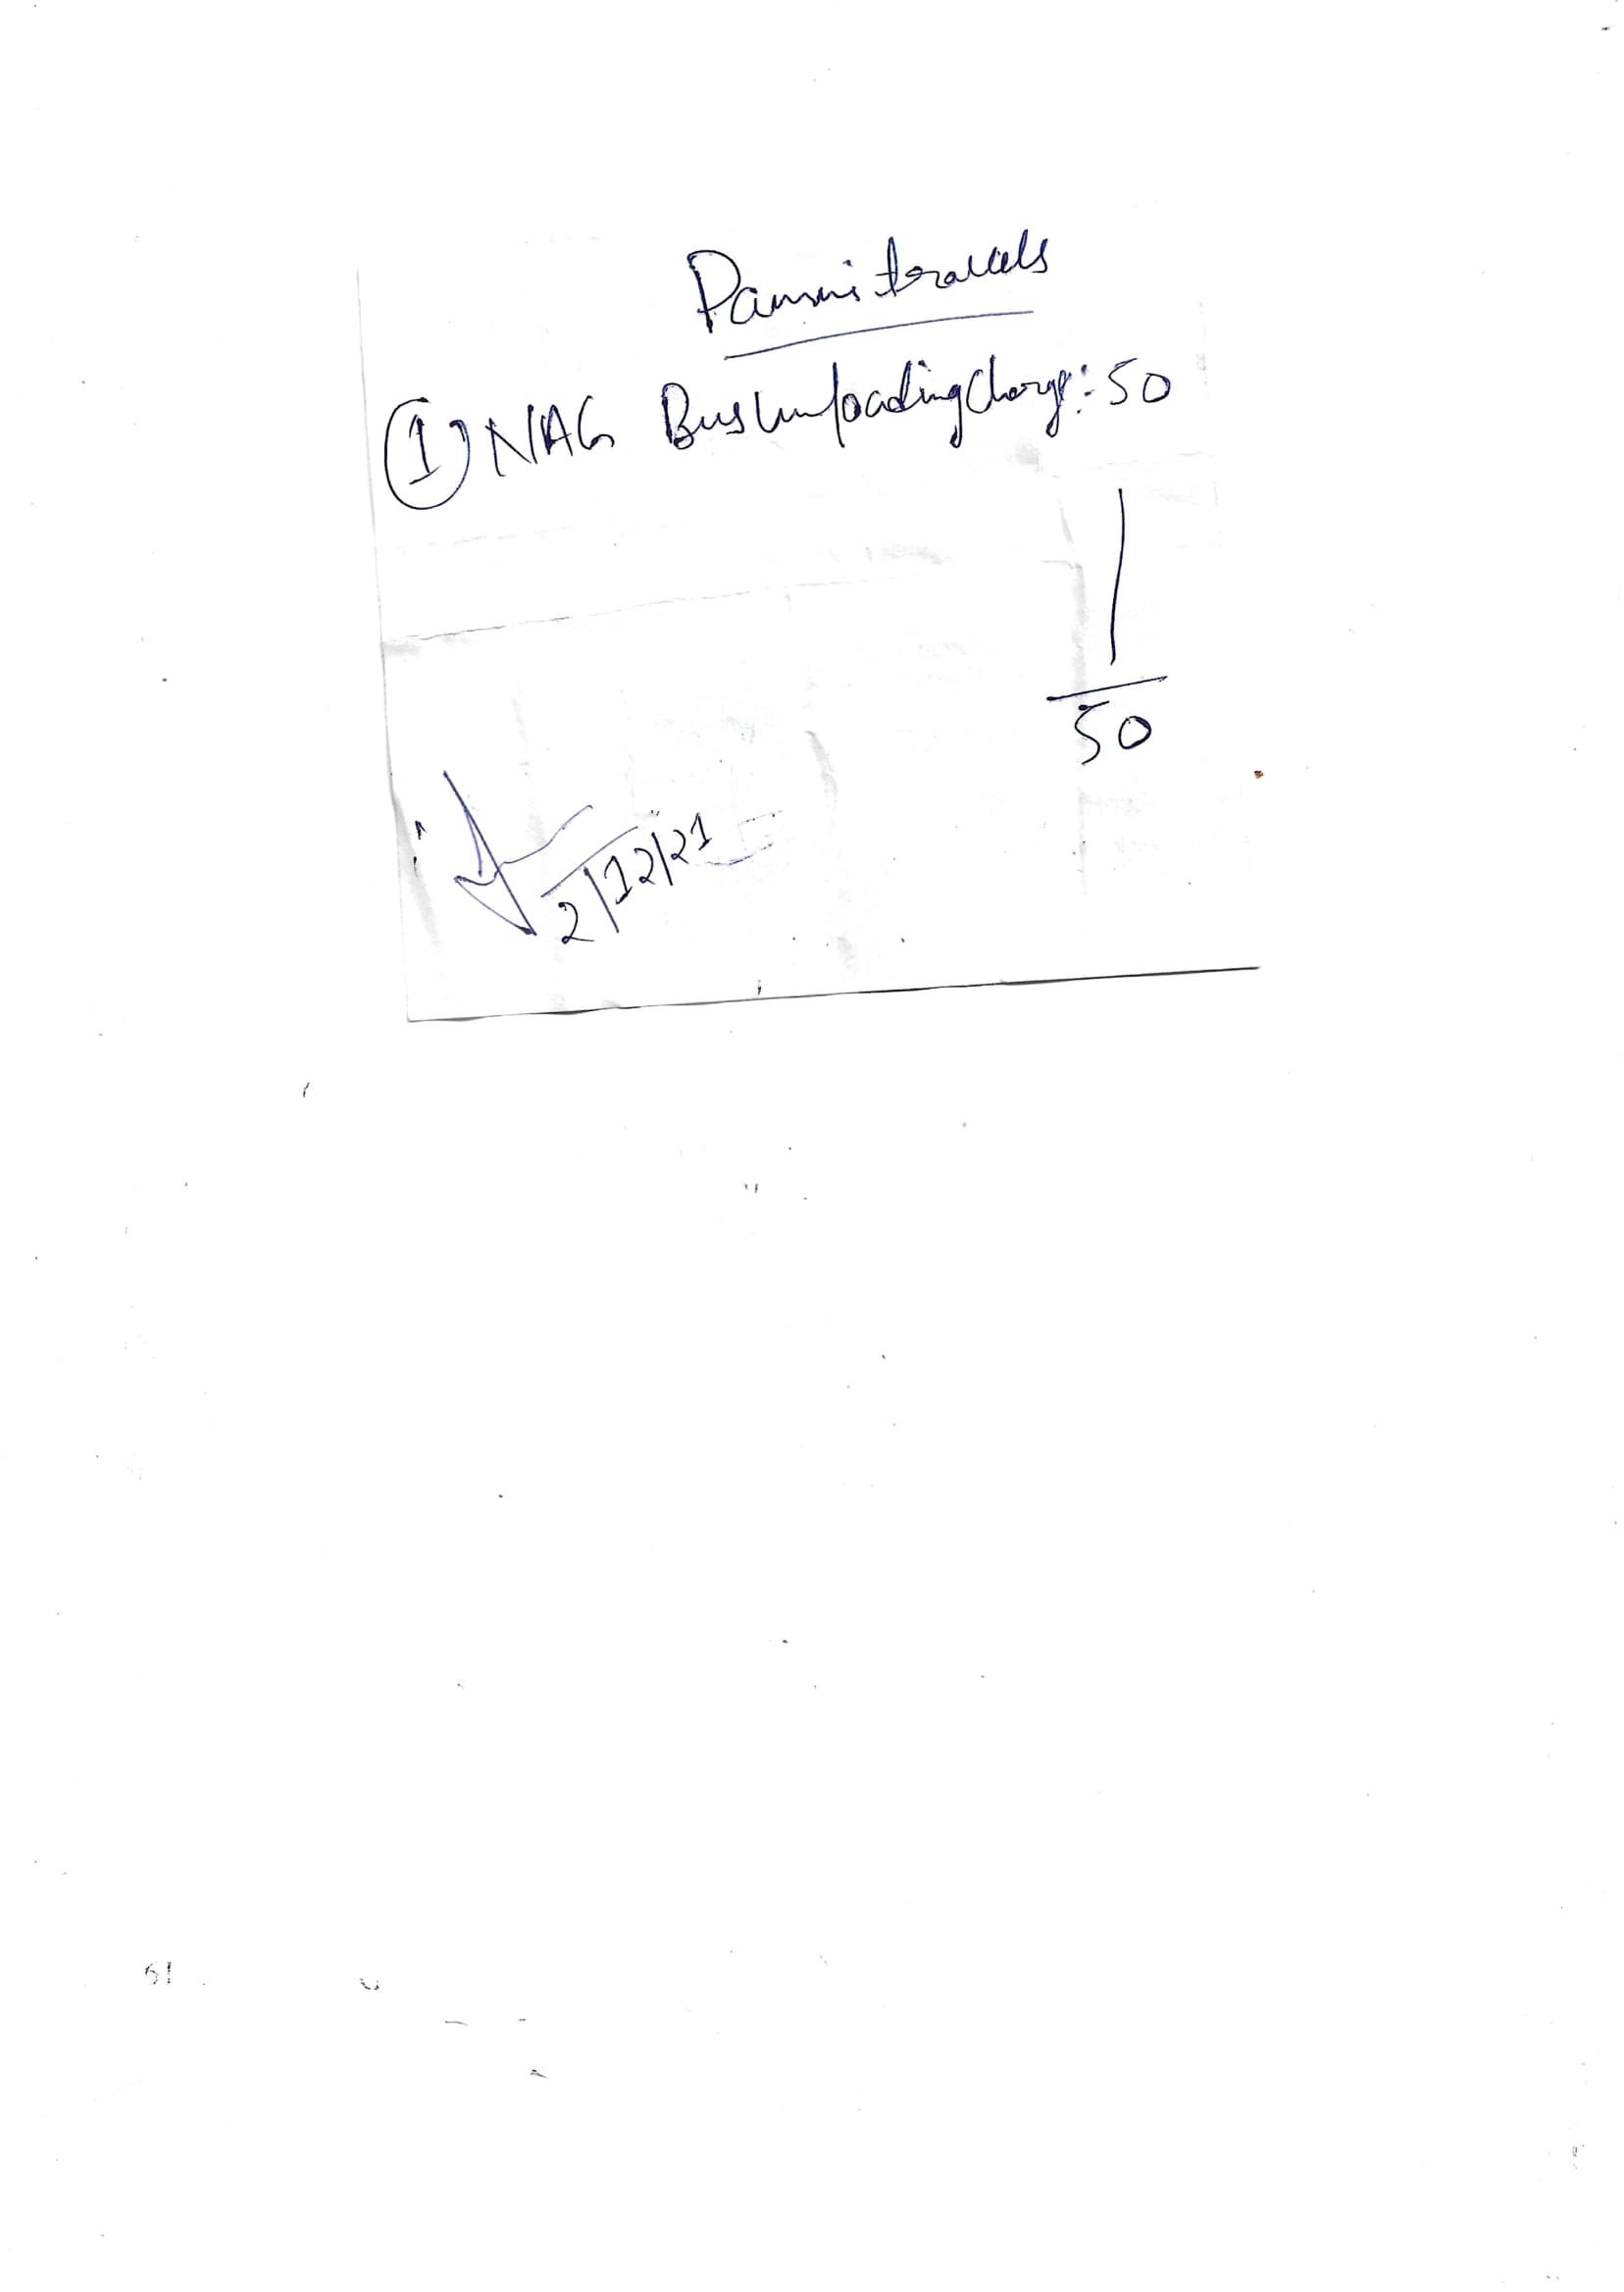 Pammi travels
① NAG Bus Unloading Charge: 50
50
2/12/21